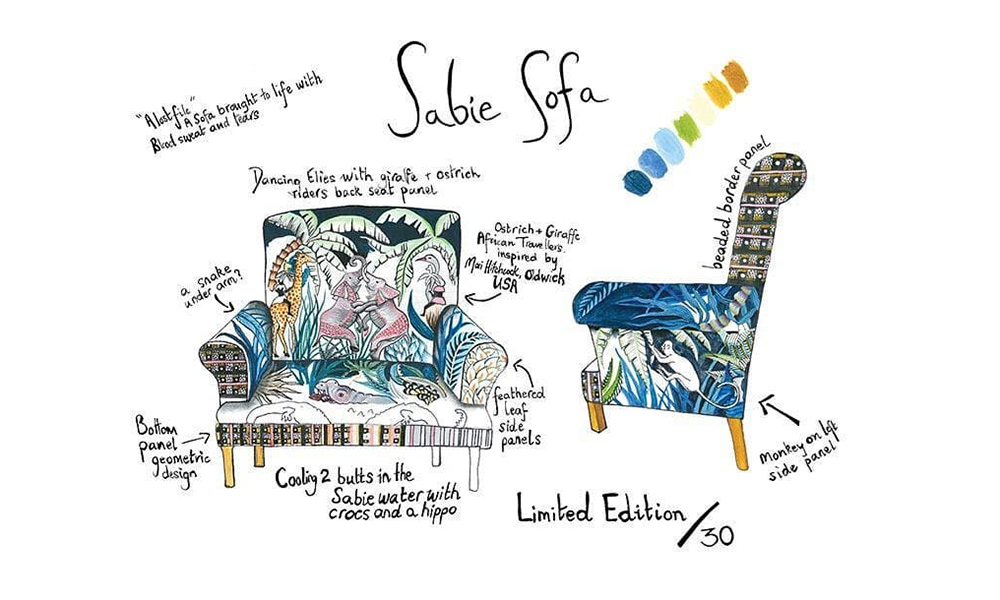 Sabie Sofa
"A lost file"
A Sofa brought to life with
Blood sweat and tears
Dancing Elies with giraffe + ostrich
riders back seat panel
beaded border panel
Ostrich + Giraffe
African Travellers
inspired by
Mari Hitchcock, Oldwick
USA
a snake
under arm?
feathered
leaf
side
panels
Bottom
panel
geometric
design
Cooling 2 butts in the
Sabie water with
crocs and a hippo
Monkey on left
side panel
Limited Edition /30